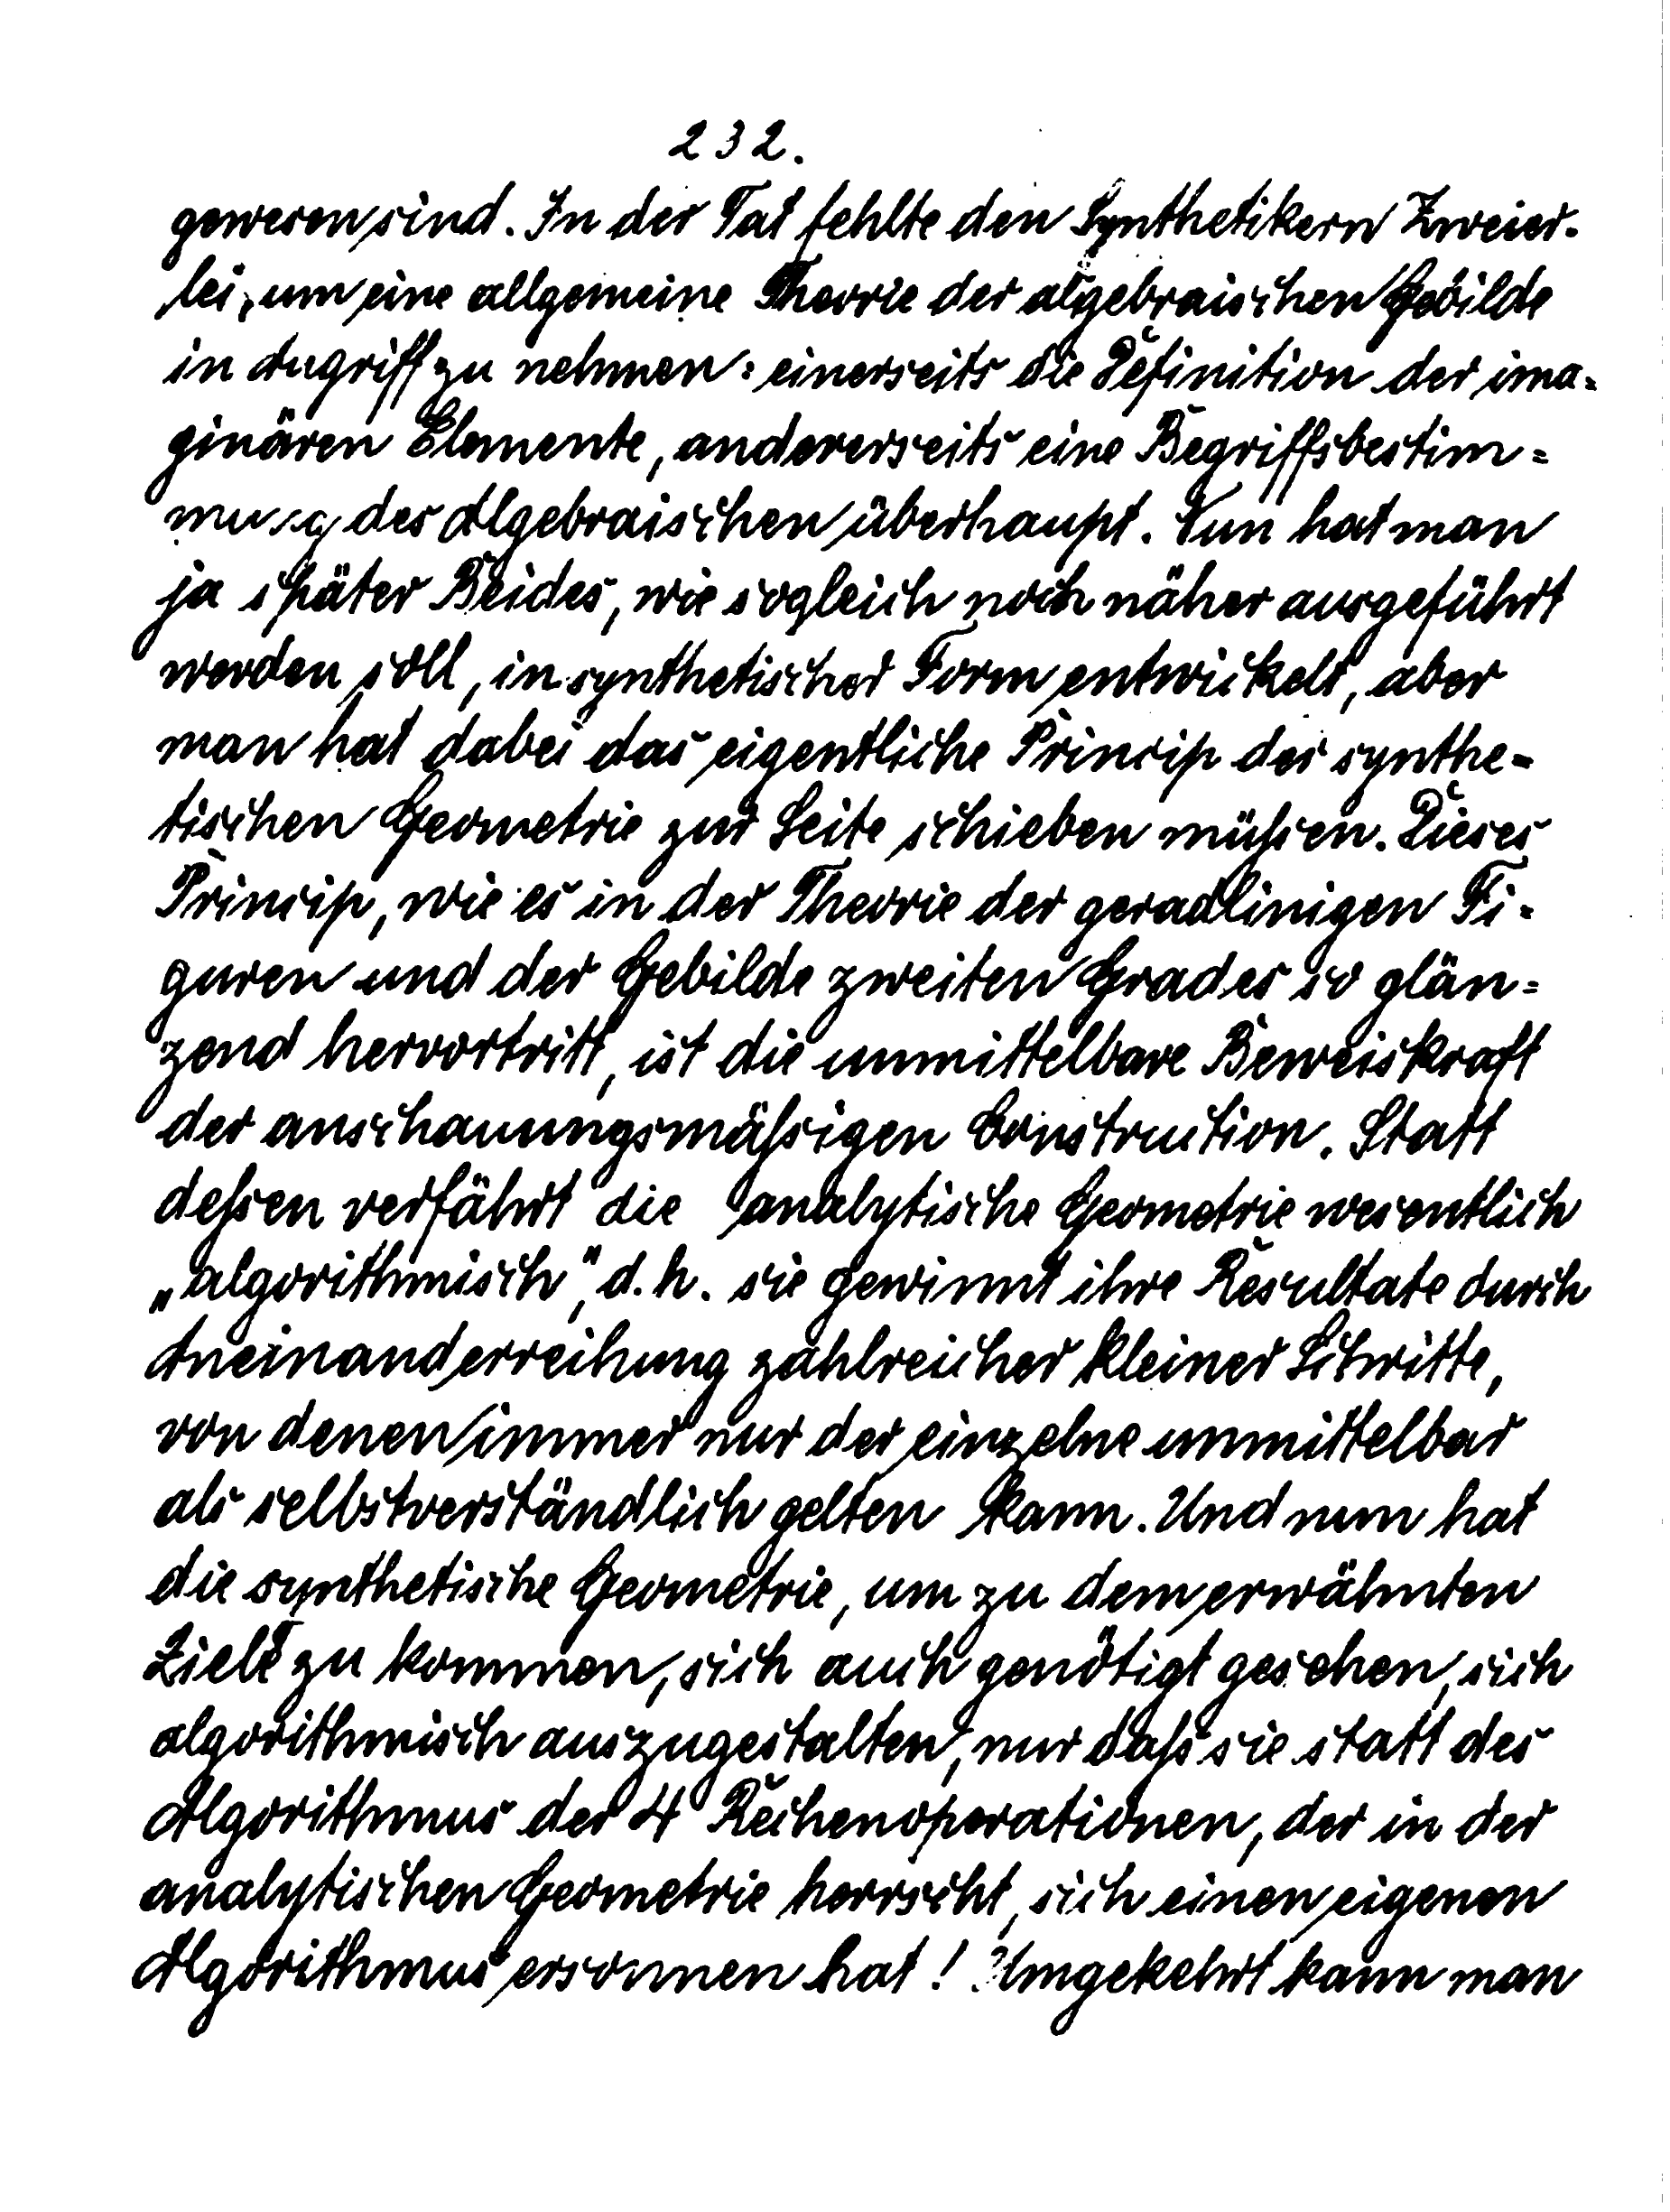 232.
gewesen sind. In der Tat fehlte den Synthetikern Zweier-
lei, um eine allgemeine Theorie der algebraischen Gebilde
in Angriff zu nehmen: einerseits die Definition der ima-
ginären Elemente, andererseits eine Begriffsbestim=
mung des Algebraischen überhaupt. Nun hat man
ja später Beides, wie sogleich noch näher ausgeführt
werden soll, in synthetischer Form entwickelt, aber
man hat dabei das eigentliche Princip der synthe-
tischen Geometrie zur Seite schieben müssen. Dieses
Princip, wie es in der Theorie der geradlinigen Fi-
guren und der Gebilde zweiten Grades so glän=
zend hervortritt, ist die unmittelbare Beweiskraft
der anschauungsmässigen Construction. Statt
dessen verfährt die analytische Geometrie wesentlich
„algorithmisch", d.h. sie gewinnt ihre Resultate durch
Aneinanderreihung zahlreicher kleiner Schritte,
von denen immer nur der einzelne unmittelbar
als selbstverständlich gelten kann. Und nun hat
die synthetische Geometrie, um zu dem erwähnten
Ziele zu kommen, sich auch genötigt gesehen, sich
algorithmisch auszugestalten, nur dass sie statt des
Algorithmus der 4 Rechenoperationen, der in der
analytischen Geometrie herrscht, sich einen eigenen
Algorithmus ersonnen hat! Umgekehrt kann man